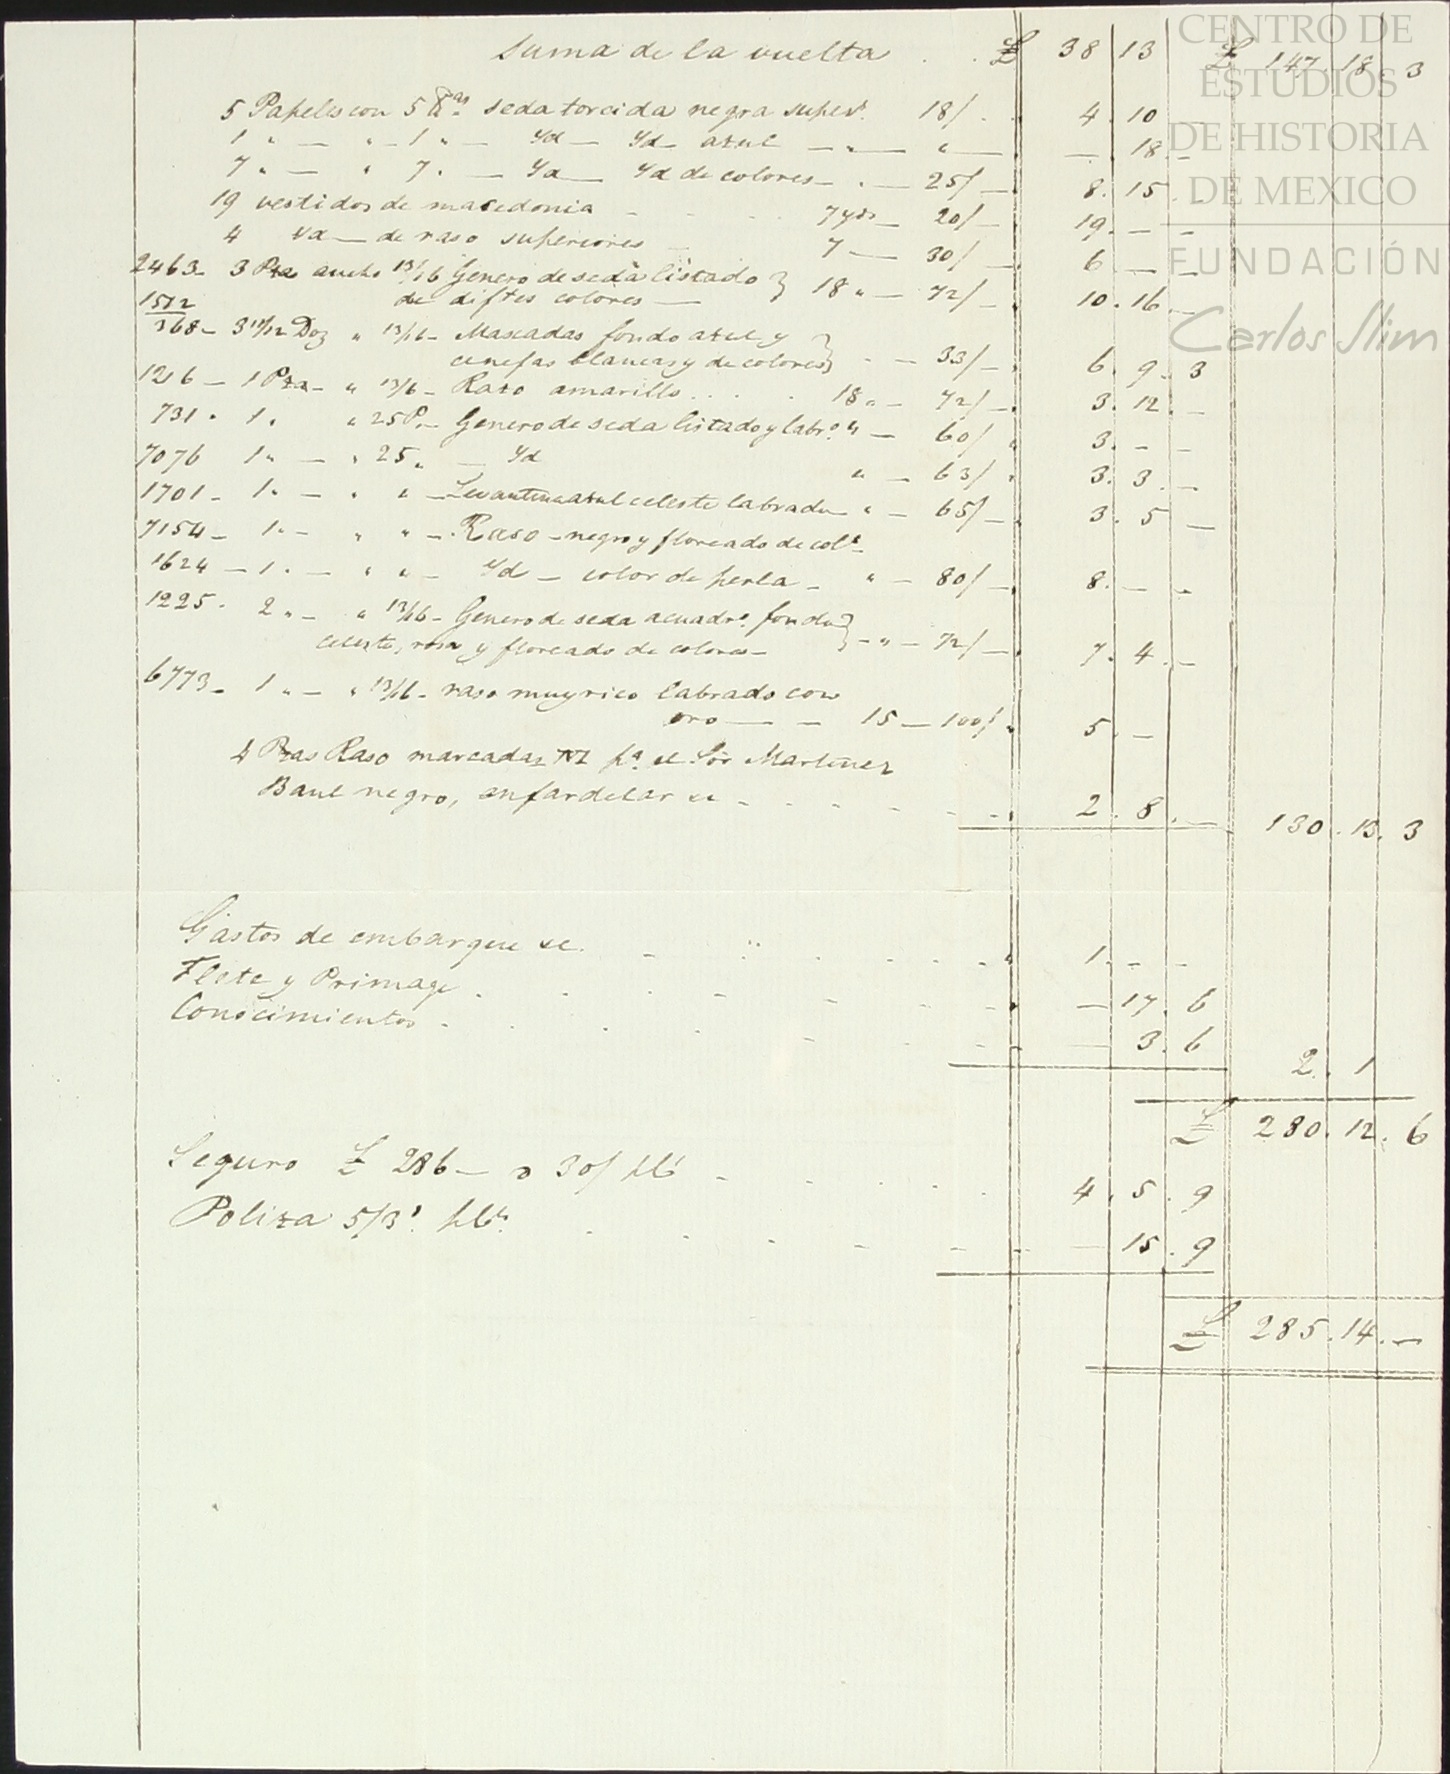 Suma de la vuelta . . £ 38 13 £ 147 18 3
5 Papeles con 5 ℔as seda torcida negra super. 18/ . . 4 . 10 —
1 " — " — 1 " — Yd — Yd — azul — " — " — — . 18 . —
7 " — " 7 . — Yd — Yd de colores — . — 25/ — 8 . 15 . —
19 vestidos de macedonia - - . . 7 yds — 20/ — 19 . — —
4 Yd — de raso superiores — 7 — 30/ — 6 — —
2463 — 3 Pzas ancho 13/16 Genero de seda listado } 18 " — 72/ — 10 . 16 —
de diftes colores —
1512
368 — 3 11/12 Doz " 13/16 — Mascadas fondo azul y
cenefas blancas y de colores } - — 33/ — 6 . 9 . 3
1216 — 1 Pza — " 13/16 — Razo amarillo . . . . 18 " — 72/ — 3 . 12 . —
731 . 1 . " 25 P. — Genero de seda listado y labro. " — 60/ " 3 . — —
7076 1 " — " 25 " — Yd " — 63/ . 3 . 3 . —
1701 — 1 " — " " — Levantina azul celeste labrada — " — 65/ — 3 . 5 —
7154 — 1 " — " " — Raso — negro y floreado de cols —
1624 — 1 . — " " — Yd — color de perla — " — 80/ — 8 . — —
1225 . 2 " — " 13/16 — Genero de seda acuadro. fondo
celeste, rosa y floreado de colores — } — " — 72/ — 7 . 4 . —
6773 — 1 " — " 13/16 — raso muy rico labrado con
oro — — 15 — 100/ " 5 . —
4 Pzas Raso marcadas pa. el Sor Martinez
Baul negro, enfardelar &c - . . - - - - 2 . 8 . — 130 . 13 . 3
Gastos de embarque &c. - . . . - " 1 . — —
Flete y Primage . . . - - - - — 17 . 6
Conocimientos - . . . - - - — 3 . 6 2 . 1
£ 280 . 12 . 6
Seguro £ 286 — a 30/ p% - . . . . 4 . 5 . 9
Poliza 5/3 p%. - - - - - — 15 . 9
£ 285 . 14 . —
CENTRO DE
ESTUDIOS
DE HISTORIA
DE MEXICO
FUNDACIÓN
Carlos Slim